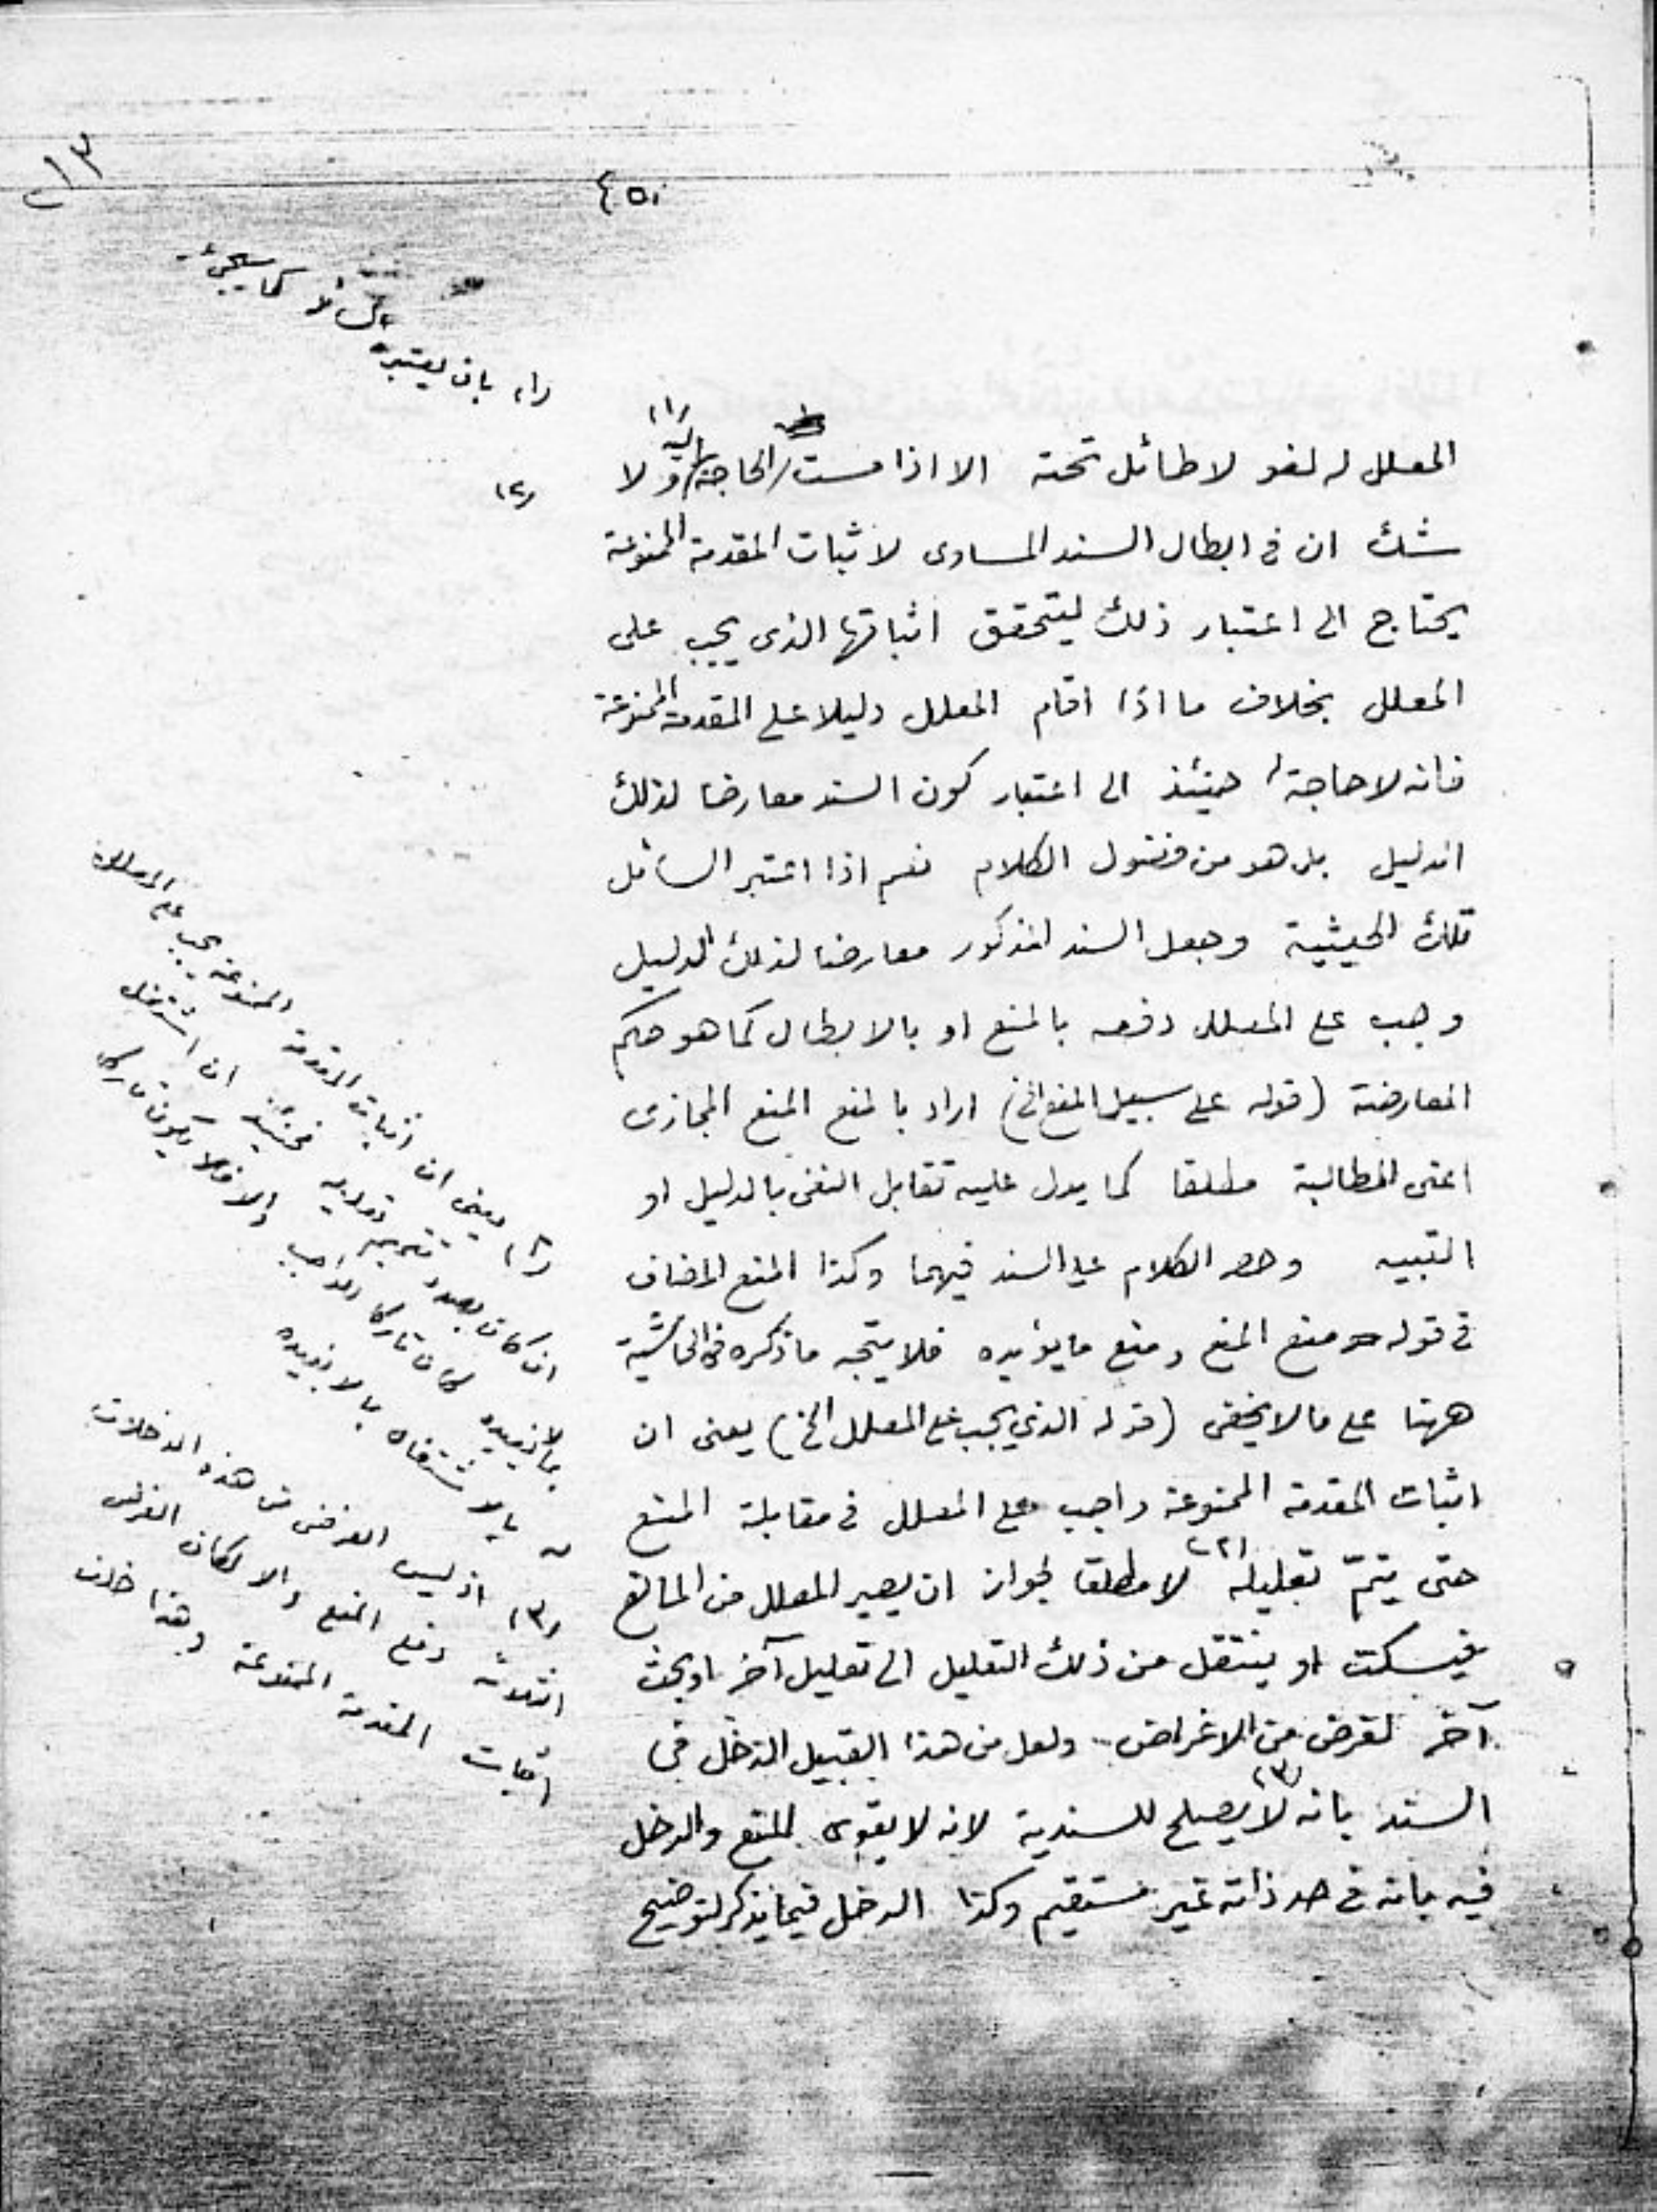 ١٣
٤٥٠
(١) بان يعتبره السائل كما سيجيء
المعلل له لغو لا طائل تحته الا اذا مست الحاجة اليه (١) ولا
(٢)
شك ان في ابطال السند المساوى لاثبات المقدمة الممنوعة
يحتاج الى اعتبار ذلك ليتحقق اثباتها الذى يجب على
المعلل بخلاف ما اذا اقام المعلل دليلا على المقدمة الممنوعة
فانه لا حاجة حينئذ الى اعتبار كون السند معارضا لذلك
الدليل بل هو من فضول الكلام نعم اذا اعتبر السائل
تلك الحيثية وجعل السند المذكور معارضا لذلك الدليل
وجب على المعلل دفعه بالمنع او بالابطال كما هو حكم
المعارضة (قوله على سبيل المنع الخ) اراد بالمنع المنع المجازى
اعنى المطالبة مطلقا كما يدل عليه تقابل النقى بالدليل او
التبيه وحصر الكلام على السند فيهما وكذا المنع المضاف
فى قوله منع المنع ومنع ما يؤيده فلا يتجه ما ذكره فى الحاشية
ههنا على ما لا يخفى (قوله الذي يجب على المعلل الخ) يعنى ان
اثبات المقدمة الممنوعة واجب على المعلل فى مقابلة المنع
حتى يتمّ تعليله (٢) لا مطلقا لجواز ان يصير المعلل من المانع
فيسكت او ينتقل من ذلك التعليل الى تعليل آخر او بحث
آخر لغرض من الاغراض ولعل من هذا القبيل الدخل فى
السند بانه (٣) لا يصلح للسندية لانه لا يقوى المنع والدخل
فيه بانه فى حد ذاته غير مستقيم وكذا الدخل فيما يذكر لتوضيح
(٢) يعنى ان اثبات المقدمة الممنوعة يجب على المعلل
ان كان بصدد تعليله فحينئذ ان اشتغل
بما لا يفيده كان تاركا للواجب والا فلا يكون تاركا
له بالاشتغال بما لا يفيده
(٣) اذ ليس الغرض من هذه الدخلات
الثلاثة دفع المنع والا لكان الغرض
اثبات المقدمة الممنوعة وهذا خلف